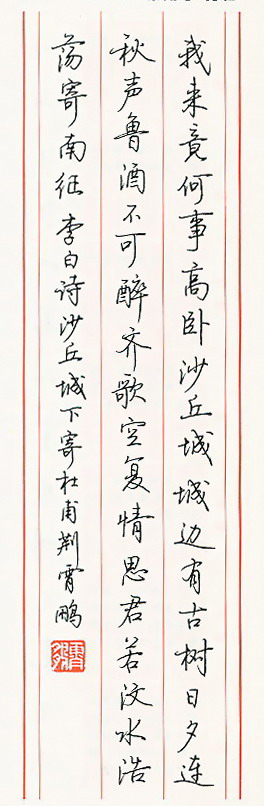 我来竟何事高卧沙丘城城边有古树日夕连
秋声鲁酒不可醉齐歌空复情思君若汶水浩
荡寄南征李白诗沙丘城下寄杜甫荆霄鹏